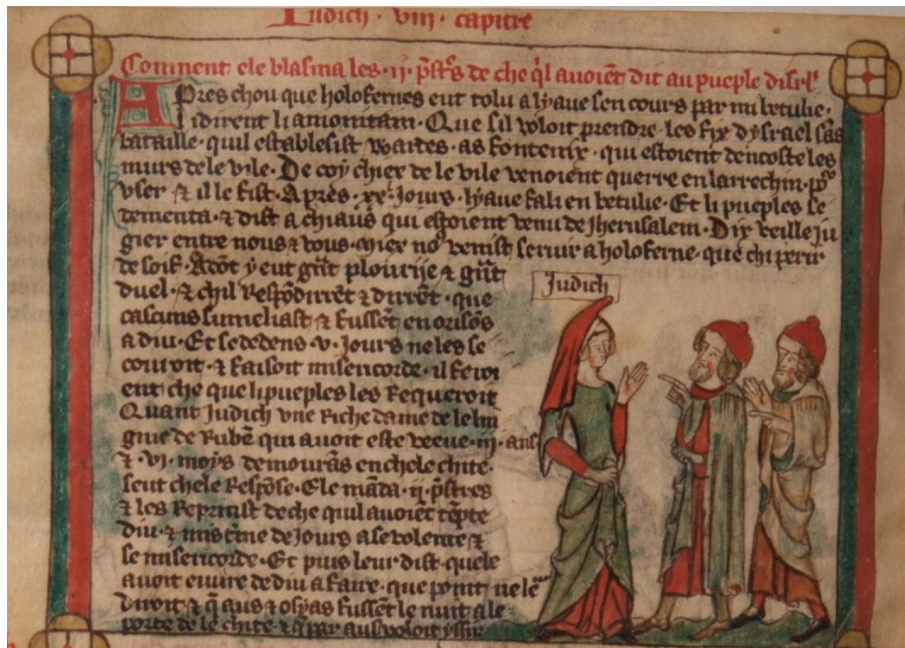 Iudich · viii · capitre
Coment ele blasma les · ij · p̄stēs de che q̄l avoiēt dit au pueple disrl̄
Apres chou que holofernes eut tolu a lyaue sen cours par mi betulie ·
Lidirent li amonitain · Que sil voloit prendre les fix dysrael sās
bataille · quil establesist waites · as fontenix · qui estoient dencoste les
murs de le vile · De coy chier de le vile venoient querre en larrechin · po᷑
vser ⁊ il le fist · Apres · xx · Jours · lyaue fali en betulie · Et li pueples se
dementa · ⁊ dist a chiaus qui estoient venu de Jherusalem · Dix veille ju
gier entre nous ⁊ vous · Miex no᷒ venist seruir a holoferne · que chi perir
de soif · Adōt y eut grāt plourije ⁊ grāt
duel · ⁊ chil respōdirēt ⁊ dirēt · que
cascuns sumeliast ⁊ fussēt en orisōs
a diu · Et se dedens · v · Jours ne les se
couroit · ⁊ faisoit misericorde · il feroi
ent che que li pueples les requeroit
Quant Judich vne riche dame de le lin
gnie de Rubē qui auoit este veeue · iij · ans
⁊ · vi · moys demourās en chele chite ·
seut chele respōse · Ele māda · ij · p̄stres
⁊ les reprinst de che quil auoiēt tēpte
diu · ⁊ mis tme de Jours a se volente ⁊
se misericorde · Et puis leur dist · quele
auoit euure de diu a faire · que point ne le᷑
diroit ⁊ q̄ aus ⁊ osyas fussēt le nuit a le
porte de le chite · ⁊ par aus voloit yssir
Judich